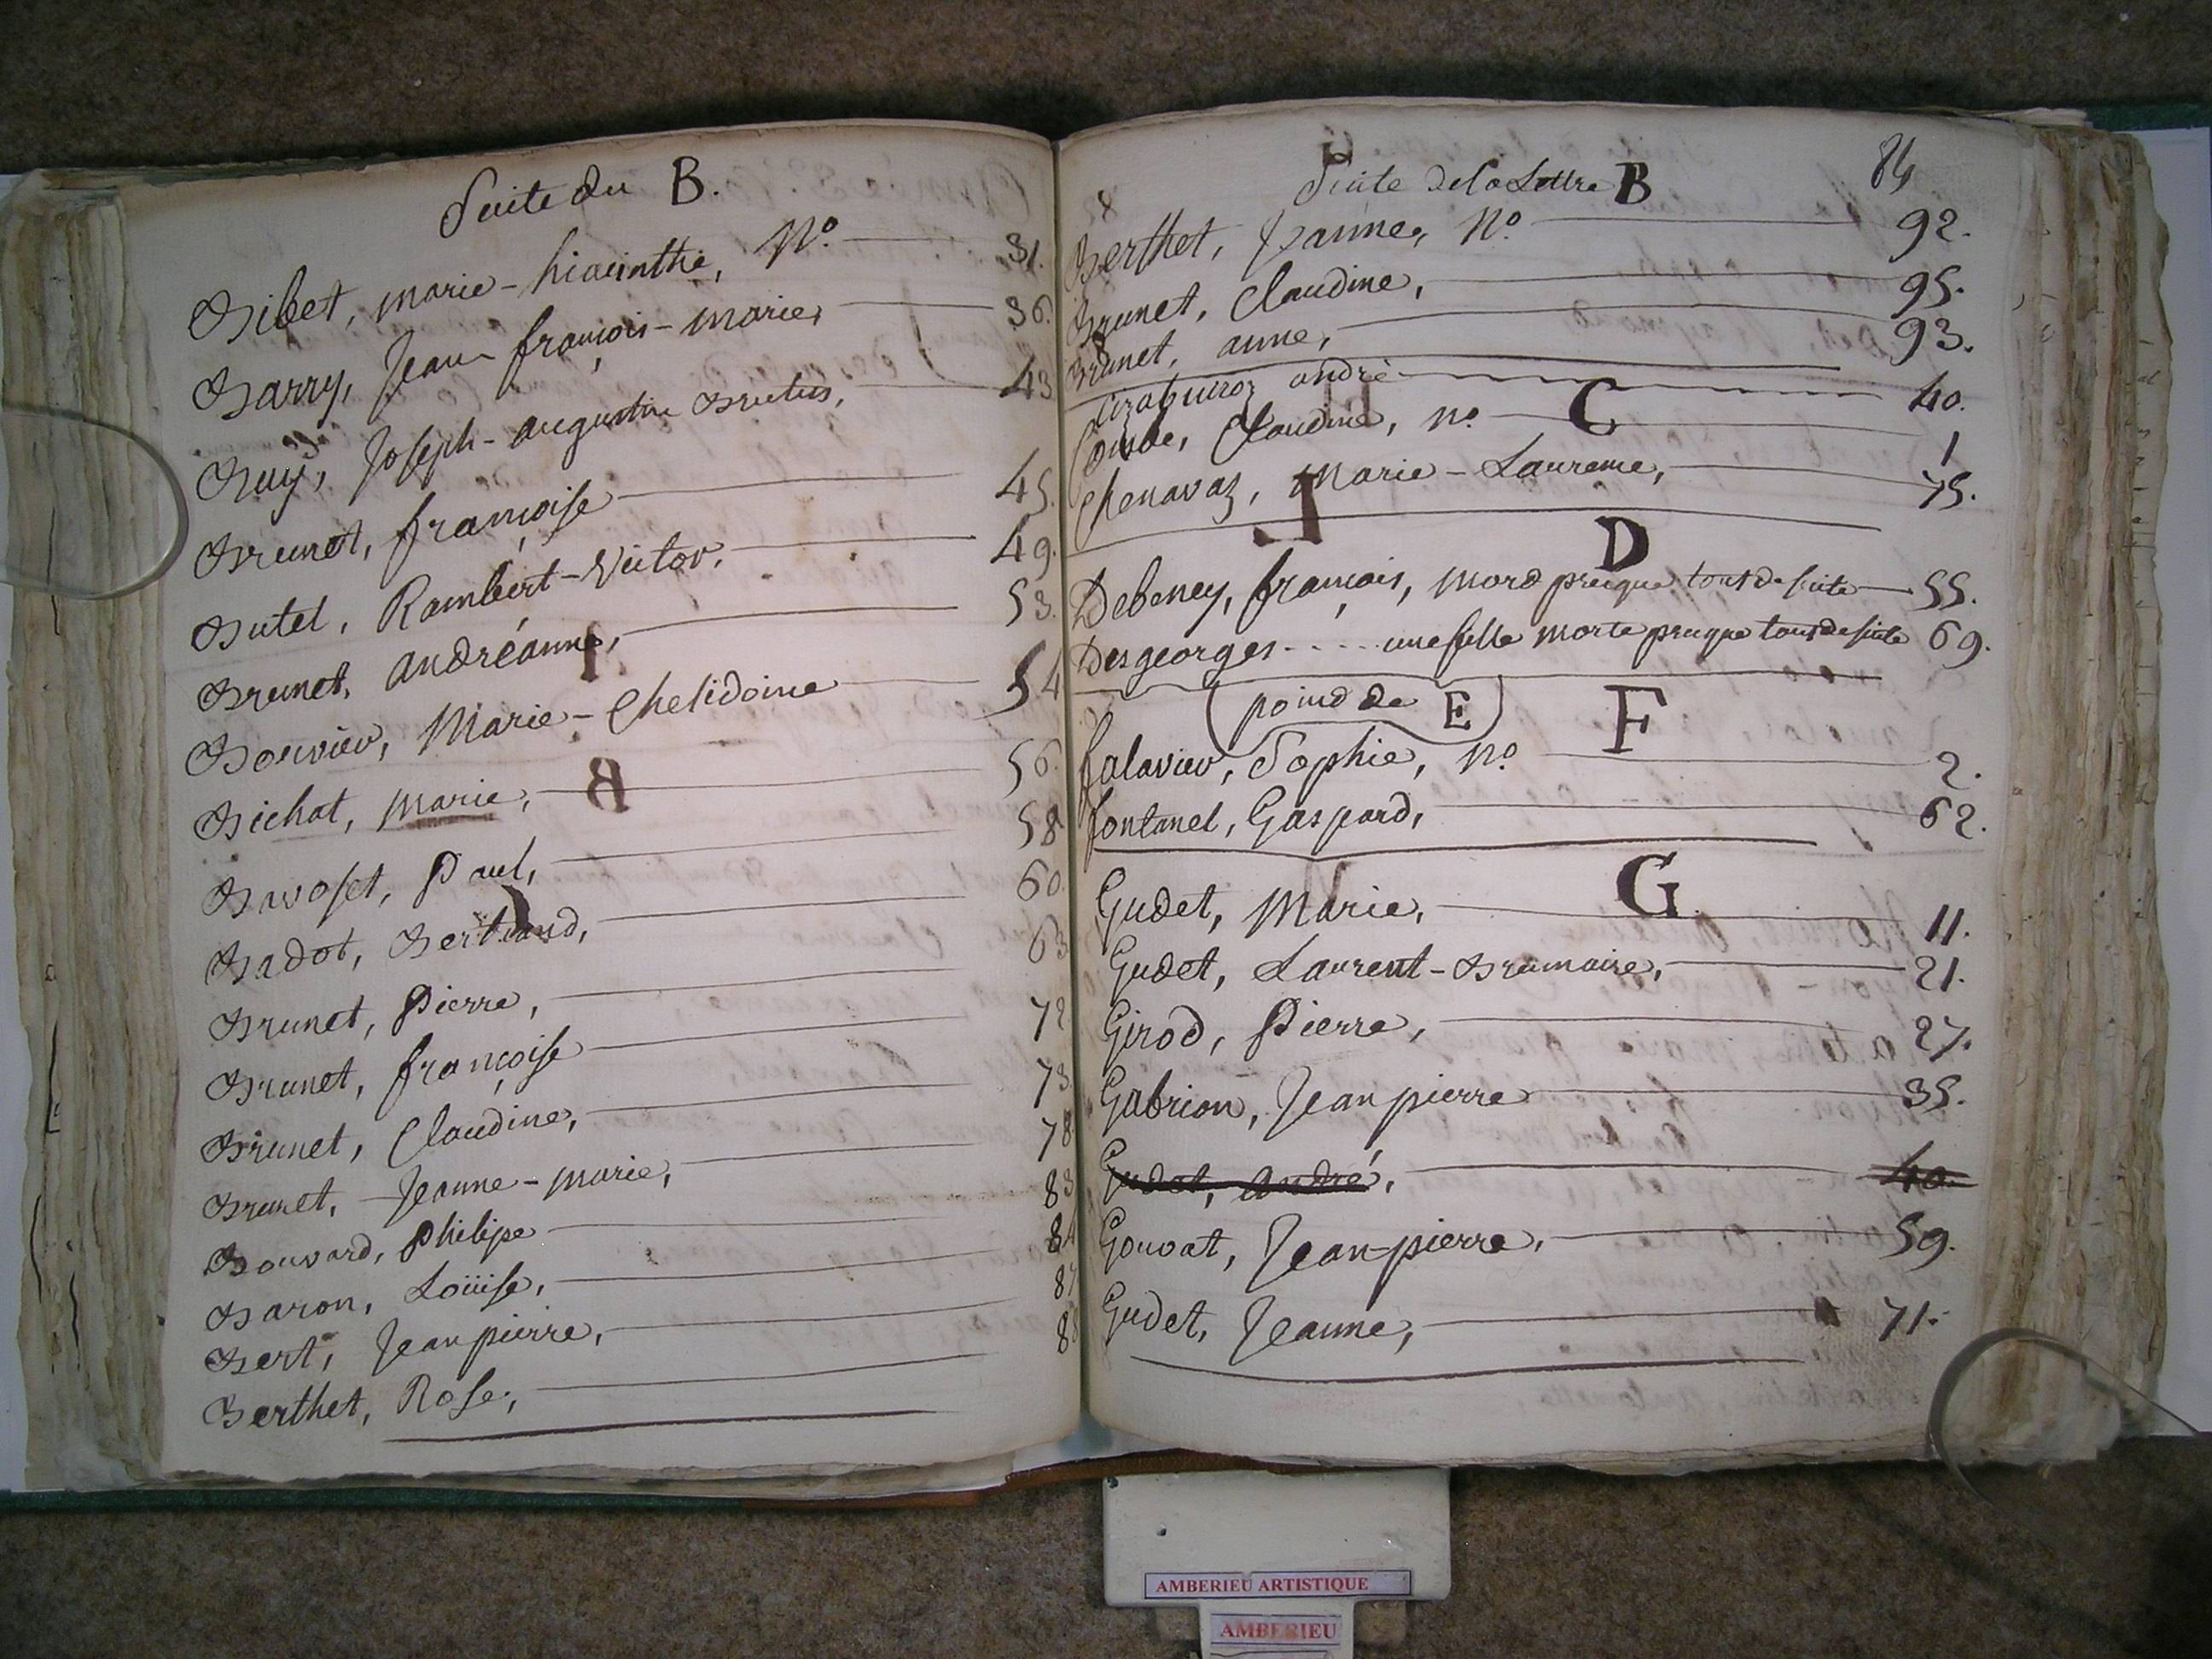 Suite du B.
Bibet, marie-hiacinthe, N.o 31.
Barry, Jean françois-marie, 36.
Buy, Joseph-augustin Brutus, 43
Brunet, françoise 45.
Butel, Rambert-Victor, 49.
Brunet, andréanne, 53.
Bouvier, Marie-Chelidoine 54
Bichat, marie, 56.
Bavoset, Paul, 58
Badot, Bertrand, 60.
Brunet, Pierre, 63
Brunet, françoise 72
Brunet, Claudine, 73.
Brunet, Jeanne-marie, 78
Bouvard, Philipe 83
Baron, Loüise, 84
Bert, Jean pierre, 87
Berthet, Rose, 88
84
Suite de la Lettre B
Berthet, Jeanne, N.o 92.
Brunet, Claudine, 95.
Brunet, anne, 93.
andré 40.
C
Claudine, n.o 1
Chenavaz, Marie-Laurence, 75.
D
Debeney, françois, mord presque tout de suite 55.
Desgeorges .... une fille morte presque tout de suite 69.
poind de E
F
falavier, Sophie, N.o 2.
fontanel, Gaspard, 62.
G
Gudet, Marie, 11.
Gudet, Laurent-Brumaire, 21.
Girod, Pierre, 27.
Gabrion, Jean pierre 35.
Gudet, André, 40.
Gouvat, Jean-pierre, 59.
Gudet, Jeanne, 71.
AMBERIEU ARTISTIQUE
AMBERIEU